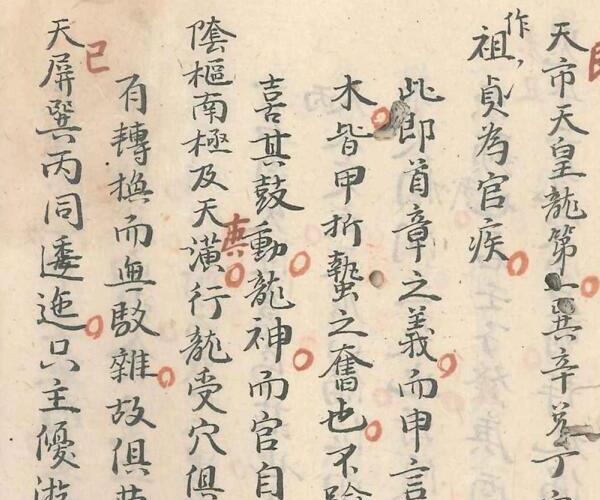 天市天皇龍第一巽辛并丁
作祖貞為官疾
此即首章之義而申言
木皆甲拆蟄之奮也不
喜其鼓動龍神而官自
陰樞南極及天潢行龍受穴俱
有轉換而無駁雜故俱
天屏巽丙同逶迤只主優游
巳
庚